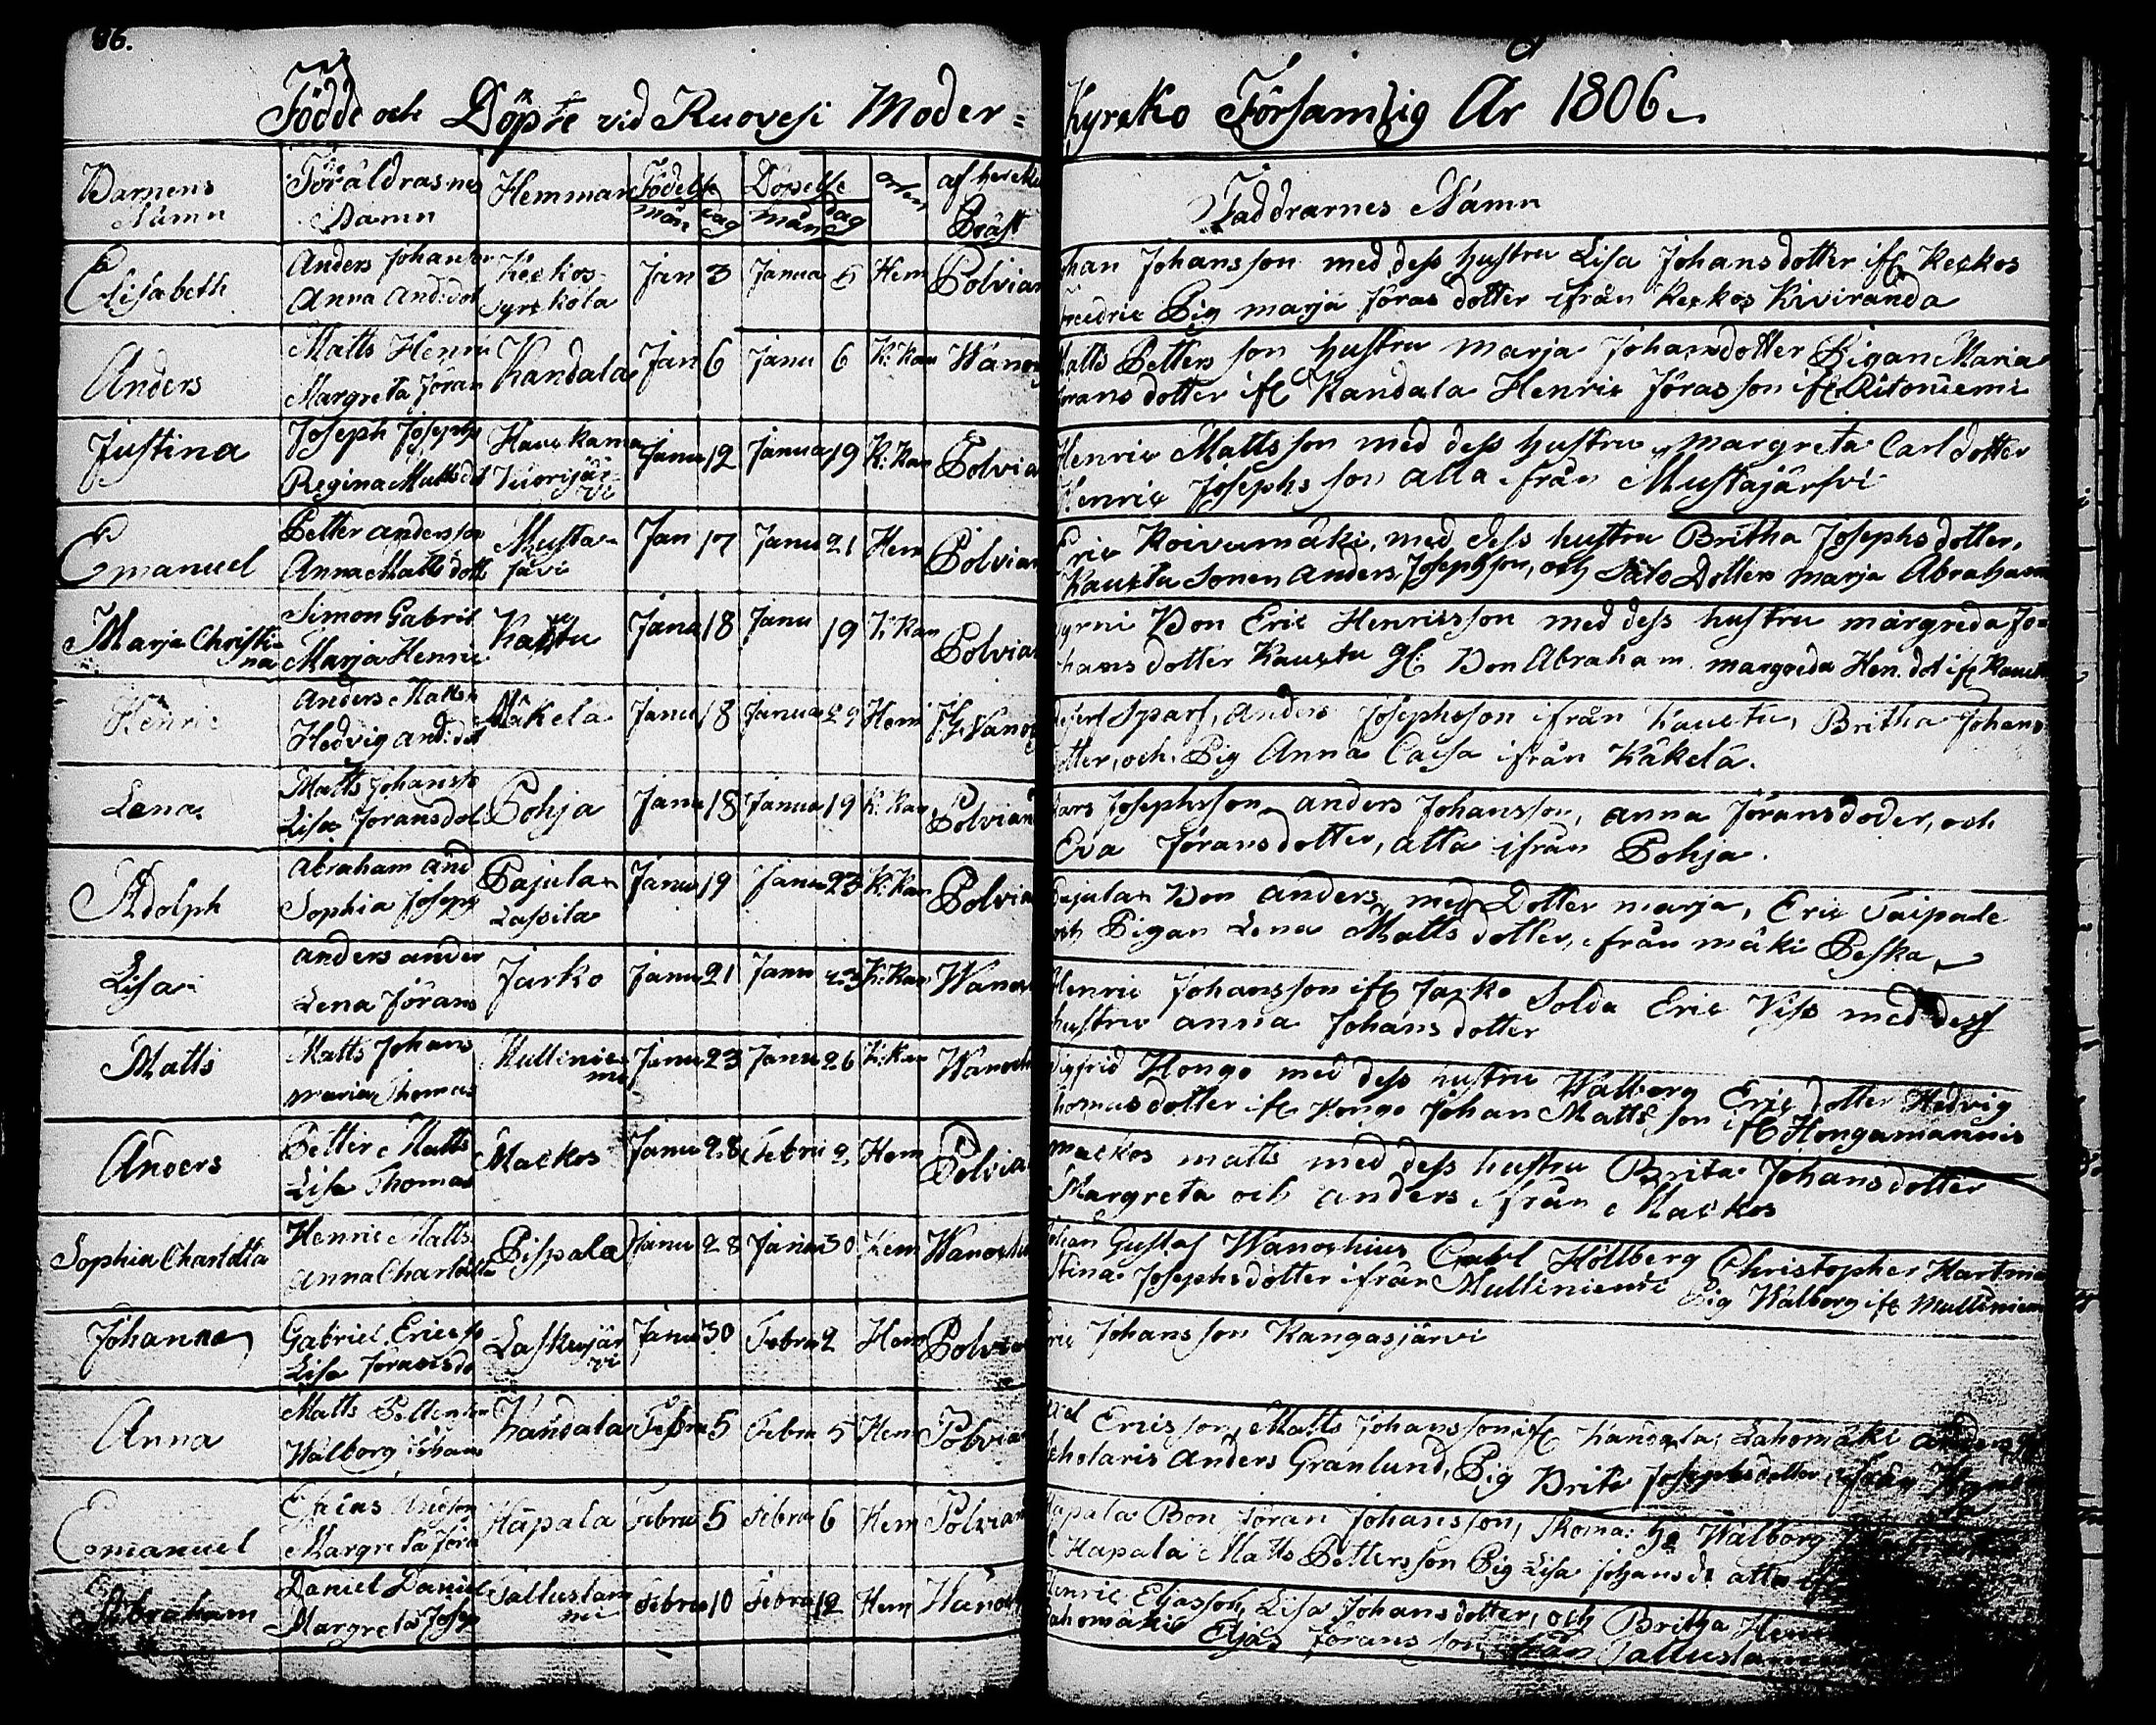 86.
Födde och Döpte vid Ruovesi Moder=
Kyrcko Församlig År 1806
Barnens Namn
Föräldrasnes Namn
Hemman
Födelse mån dag
Döpelse mån dag
orten
af hvicken Präst
Faddrarnes Námn
Elisabeth
Anders Johansson
Anna And:dot
Keckos
Syrckola
Jan 3 Janua 5 Hem Polvian
Johan Johansson med dess hustru Lisa Johans dotter ifr Keckos
Fredric Pig marja Jöras dotter ifrån Keckos Kiviranda
Anders
Matts Henri
Margreta Jöran
Kandala Jan 6 Janu 6 K: Kan Wanos
Matts Petters son hustru marja Johansdotter Pigan Maria
Jörans dotter ifr Kandala Henric Jöras son ifr Ritoniemi
Justina
Joseph Joseph
Regina Matts dot
Hauckama
Vuorijär
vi
Janu 12 Janua 19 K: Kan Polvia
Henric Matts son med dess hustru margreta Carl dotter
Henric Josephs son alla ifrån Mustajärfvi
Emanuel
Petter andersson
Anna Matts dott
Musta-
jävi
Jan 17 Janu 21 Hem Polvian
Eric Koivumäki, med dess hustru Britha Josephs dotter,
Kaucktu Sonen Anders Josephsson, och Säto Dotter marja Abraham
Marja Christi-
na
Simon Gabril
Marja Henric
Kautu Janu 18 Janu 19 K: Kan Polvian
Syrni Bon Eric Henricsson med dess hustru margreda Jo=
hans dotter Kaucktu Bon Abraham margreda Hen. dot ifr Kauck
Henric
Anders Matts
Hedvig and: dot
Mäkelä Janu 18 Janua 22 Hem Wanos
Sparf, Anders Josephsson ifrån Kaucktu, Britha Johans
dotter, och Pig Anna Caisa ifrån Käkelä.
Lena
Matts Johansso
Lisa Joransdot
Pohja Janu 18 Janua 19 K: Kan Polvian
Lars Josephsson anders Johansson, anna Jöransdoder, och
Eva Jöransdotter, alla ifrån Pohja.
Adolph
Abraham and
Sophia Joseph
Pajulan
Lassila
Janu 19 Janu 23 K: Kan Polvia
Pajulan Bon anders, med Dotter marja, Eric Taipale
och Pigan Lena Matts dotter, ifrån mäki Peska
Lisa
anders ander
Lena Jörans
Jarko Janu 21 Janu 23 K: Kan Wanos
Henric Johansson ifr Jarko Solda Eric Viss med dess
hustru anna Johans dotter
Matts
Matts Johans
maria Thomas
Mullinie
mi
Janu 23 Janu 26 K: Kan Wanosh
Sigfrid Hongo med dess hustru Walborg Eric dotter Hedvig
Thomasdotter ifr Hongo Johan Matts son ifr Hongamannis
Anders
Petter Matts
Lisa Thomas
Mackos Janu 28 Febru 2 Hem Polvia
mackos matts med dess hustru Brita Johans dotter
Margreta och anders ifrån Mackos
Sophia Charlotta
Henric Matts
Anna Charlotta
Pispala Janu 28 Janu 30 Hem Wanoshi
Johan Gustaf Wanoshius Carl Höllberg Christopher Hartma
Stina Josephsdotter ifrån Mulliniemi Pig Walborg ifr Mulliniem
Johanna
Gabriel Ericsso
Lisa Joransdo
Laskujär
vi
Janu 30 Febru 2 Hem Polvia
Eric Johans son Kangasjärvi
Anna
Matts Petterson
Walborg Johans
Kandala Febru 5 Febru 5 Hem Polvia
Ericsson, Matts Johansson ifr Kandala, Lahomäki anders
Scholaris Anders Granlund, Pig Brita Josephsdotter ifrån
Emanuel
Esaias
Margreta Jöra
Hapala Febru 5 Febru 6 Hem Polvian
Hapala Bon Jöran Johansson, Thoma: Walborg
Hapala Matts Petters son Pig Lisa Johansd alla
Abraham
Daniel Daniel
Margreta Josep
Jallustam
mi
Febru 10 Febru 12 Hem Wanosh
Henric Eljasson, Lisa Johansdotter, och Britha Hen
Lahomäki Eljas Jörans son, från Jallustam